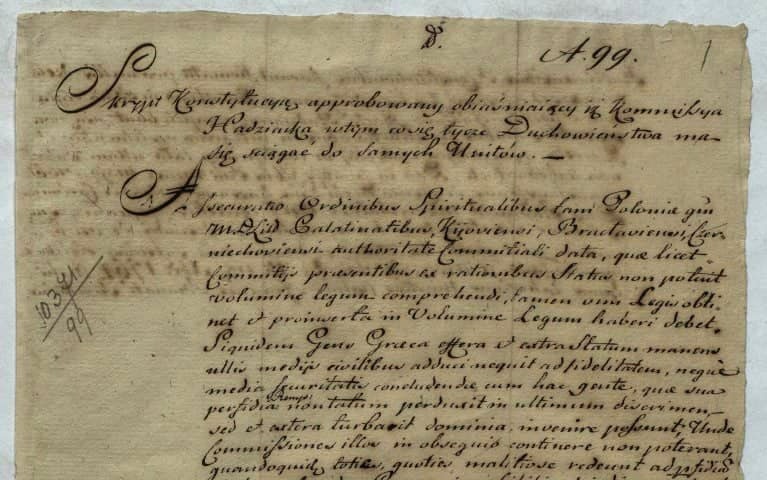 D.
A. 99.
1
Skrypt Konstytucyą approbowany obiaśniaiący iż Kommissya
Hadziacka wtym co się tycze Duchowienstwa ma-
się sciągać do samych Unitów. —
Assecuratio Ordinibus Spiritualibus tam Poloniæ qm
M.D. Litt Palatinatibus, Kijoviensi, Braclaviensi, Czer-
niechoviensi authoritate Commitiali data, quæ licet
Commitijs præsentibus ex rationibus Status non potuit
volumine legum comprehendi, tamen vim Legis obti-
net et proinserta in Volumine Legum haberi debet.
Siquidem Gens Græca effera et extra Statum manens
ullis medijs civilibus adduci nequit ad fidelitatem, neque
media securitatis concludendæ cum hac gente, quæ sua
perfidia Remp: non tantum perduxit in ultimum discrimen,
sed et extera turbavit dominia, invenire possunt, Unde
Commissiones illos in obsequio continere non poterant,
quandoquidę toties, quoties malitiose redeunt ad pfidia
1037/99